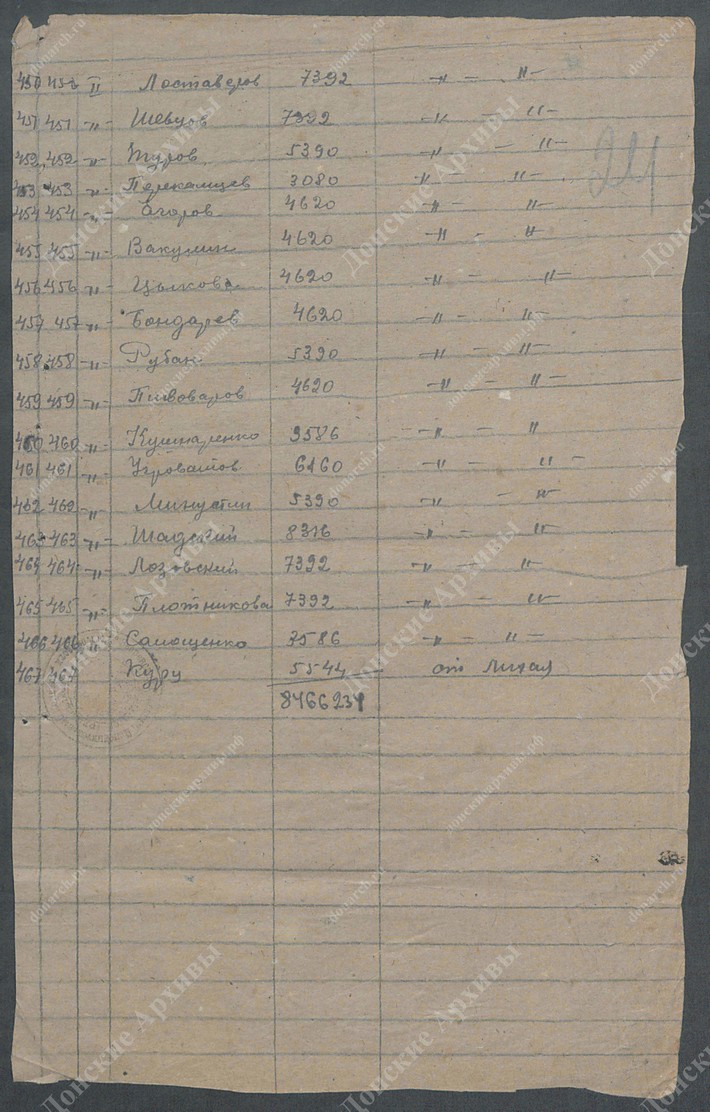 450 450 II Лоставеров 7392 -"- -"-
451 451 -"- Шевцов 7392 -"- -"-
452 452 -"- Журов 5390 -"- -"-
453 453 -"- Перекамцев 3080 -"- -"-
454 454 -"- Егоров 4620 -"- -"-
455 455 -"- Вакулин 4620 -"- -"-
456 456 -"- Цыкова 4620 -"- -"-
457 457 -"- Бондарев 4620 -"- -"-
458 458 -"- Рубан 5390 -"- -"-
459 459 -"- Пивоваров 4620 -"- -"-
460 460 -"- Кушнаренко 9586 -"- -"-
461 461 -"- 6160 -"- -"-
462 462 -"- Минустин 5390 -"- -"-
463 463 -"- Шадский 8316 -"- -"-
464 464 -"- Лозовский 7392 -"- -"-
465 465 -"- Плотникова 7392 -"- -"-
466 466 -"- Самощенко 3586 -"- -"-
467 467 Куру 5544 от Лихая
8466234
Донские Архивы
donarch.ru
донскиеархивы.рф